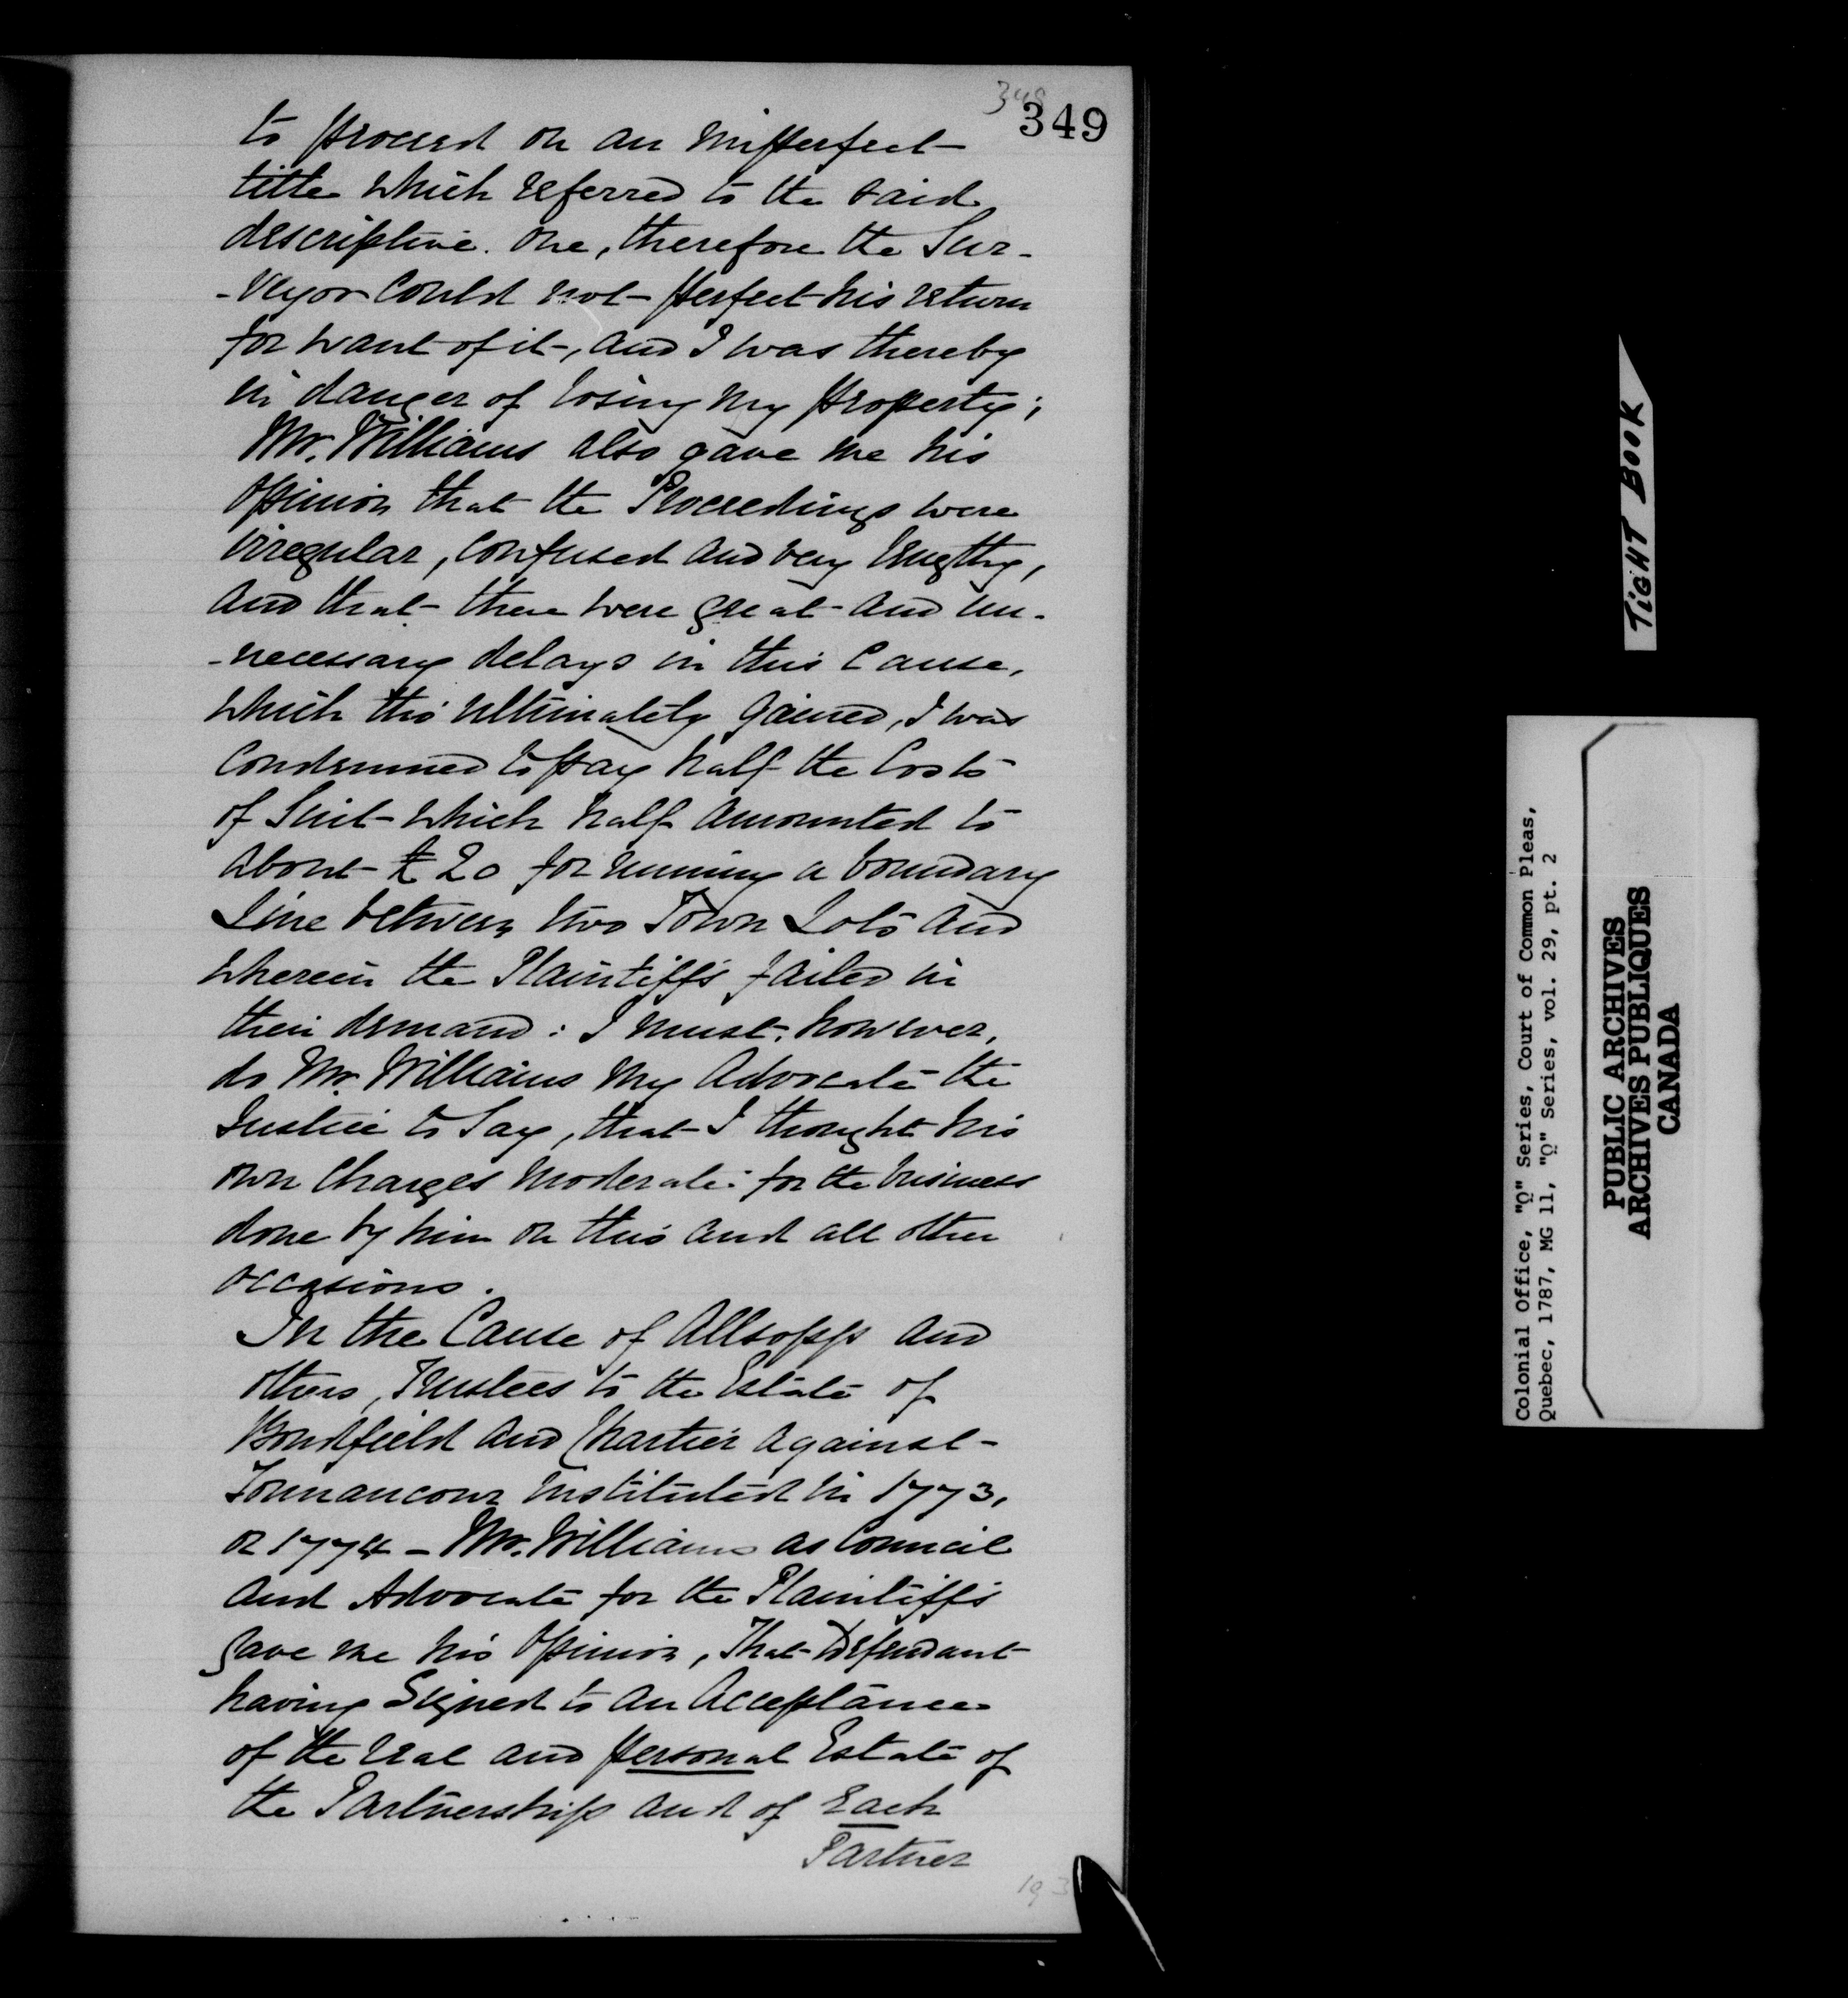 348
349
to proceed on an imperfect
title which referred to the said
descriptive one, therefore the Sur-
-veyor could not perfect his return
for want of it, and I was thereby
in danger of losing my property;
Mr. Williams also gave me his
opinion that the Proceedings were
irregular, confused and very lengthy,
and that there were great and un-
-necessary delays in this Cause,
which tho' ultimately gained, I was
condemned to pay half the Costs
of Suit which half amounted to
about £20 for running a boundary
Line between two Town Lots and
wherein the Plaintiffs failed in
their demand: I must, however,
do Mr. Williams my Advocate the
Justice to say, that I thought his
own charges moderate for the business
done by him on this and all other
occasions.
In the Cause of Allsopp and
others, Trustees to the Estate of
Bondfield and Chartier against
Tonnancour instituted in 1773,
or 1774 - Mr. Williams as Council
and Advocate for the Plaintiffs
gave me his opinion, That Defendant
having Signed to an Acceptance
of the real and personal Estate of
the Partnership and of Each
Partner
193
TIGHT BOOK
Colonial Office, "Q" Series, Court of Common Pleas,
Quebec, 1787, MG 11, "Q" Series, vol. 29, pt. 2
PUBLIC ARCHIVES
ARCHIVES PUBLIQUES
CANADA